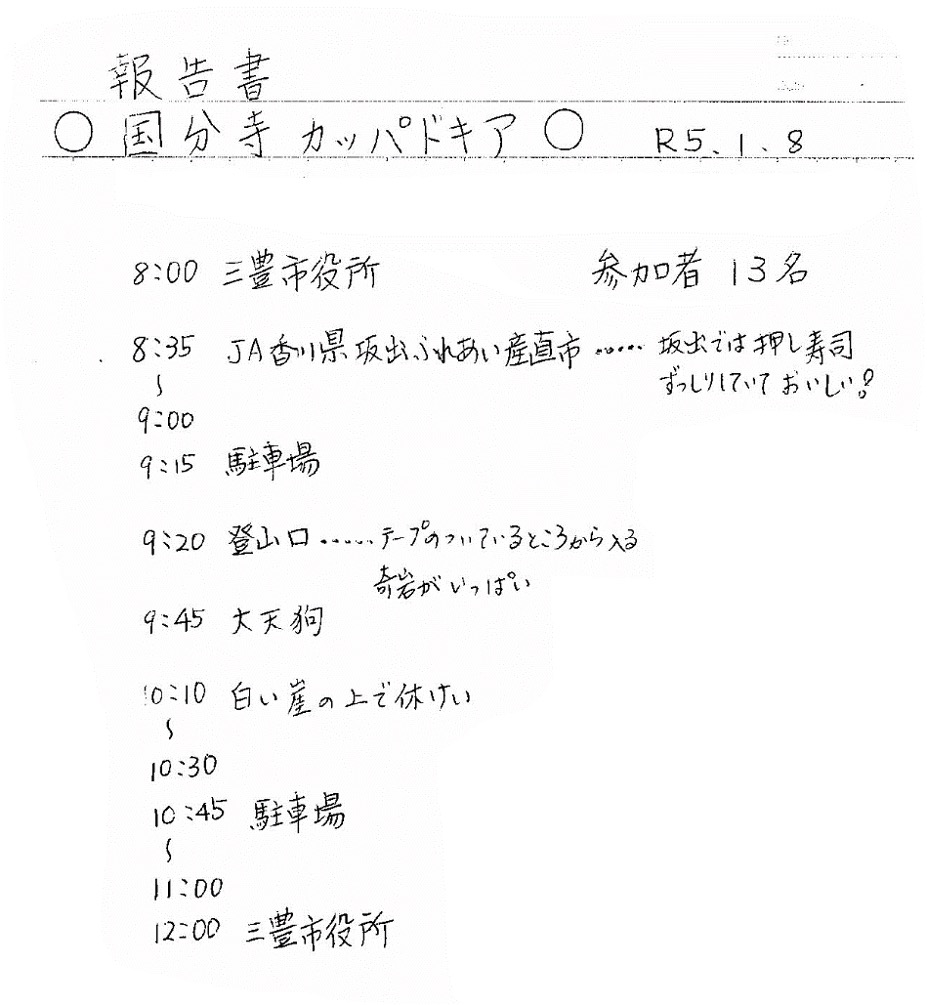 報告書
○ 国分寺 カッパドキア ○ R5.1.8
8:00 三豊市役所 参加者 13名
8:35 JA香川県坂出ふれあい産直市 ‥‥‥ 坂出では押し寿司
〜 ずっしりしていておいしい!
9:00
9:15 駐車場
9:20 登山口 ‥‥‥テープのついているところから入る
奇岩がいっぱい
9:45 大天狗
10:10 白い崖の上で休けい
〜
10:30
10:45 駐車場
〜
11:00
12:00 三豊市役所